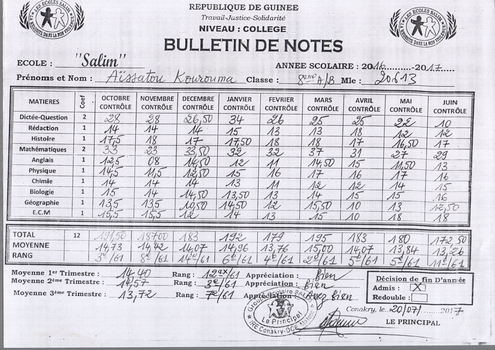 REPUBLIQUE DE GUINEE
Travail-Justice-Solidarité
NIVEAU : COLLEGE
BULLETIN DE NOTES
ECOLE : "Salim" ANNEE SCOLAIRE : 2016 2017
Prénoms et Nom : Aïssatou Kourouma Classe : 8ème A/B Mle : 20613
MATIERES Coef OCTOBRE CONTRÔLE NOVEMBRE CONTRÔLE DECEMBRE CONTRÔLE JANVIER CONTRÔLE FEVRIER CONTRÔLE MARS CONTRÔLE AVRIL CONTRÔLE MAI CONTRÔLE JUIN CONTRÔLE
Dictée-Question 2 28 28 26,50 34 26 25 25 22 10
Rédaction 1 14 14 14 15 13 13 18 12 12
Histoire 1 17,5 18 17 17,50 18 18 17 16,50 17
Mathématiques 2 33 23 33,50 32 32 37 31 27 29
Anglais 1 12,5 08 16,50 12 11 14,50 15 11,50 13
Physique 1 14,5 11,5 12,50 15 16 17 16 17 16
Chimie 1 14 14 14 13 11 12 12 14 16
Biologie 1 15 14 14 13,50 13 14 14 14 15
Géographie 1 13,5 13,5 13,50 14,50 12 15,50 10 13 12,50
E.C.M 1 15,5 15,5 12 14 13 15 10 18 18
TOTAL 12 183 192 179 195 183 180 172,50
MOYENNE 14,73 14,42 14,07 14,96 13,76 15,00 14,07 13,84 13,26
RANG 3e/61 6e/61 4e/61 2e/61 5e/61 5e/61 11e/61
Moyenne 1er Trimestre : 14,40 Rang : /61 Appréciation : Bien
Moyenne 2ème Trimestre : 14,57 Rang : 3e/61 Appréciation : Bien
Moyenne 3ème Trimestre : 13,72 Rang : 7e/61 Appréciation : Assez Bien
Décision de fin D'année
Admis : X
Redouble :
Conakry, le 20/07/ 2017
LE PRINCIPAL
Le Principal